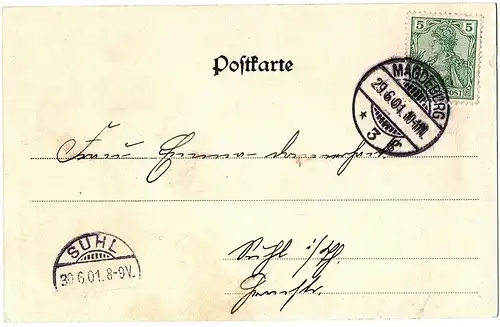 5 5
Postkarte
MAGDEBURG
29.6.01.10-11N.
* 3 g*
Frau Emma
SUHL
30.6.01.8-9V.
Suhl i/Th.